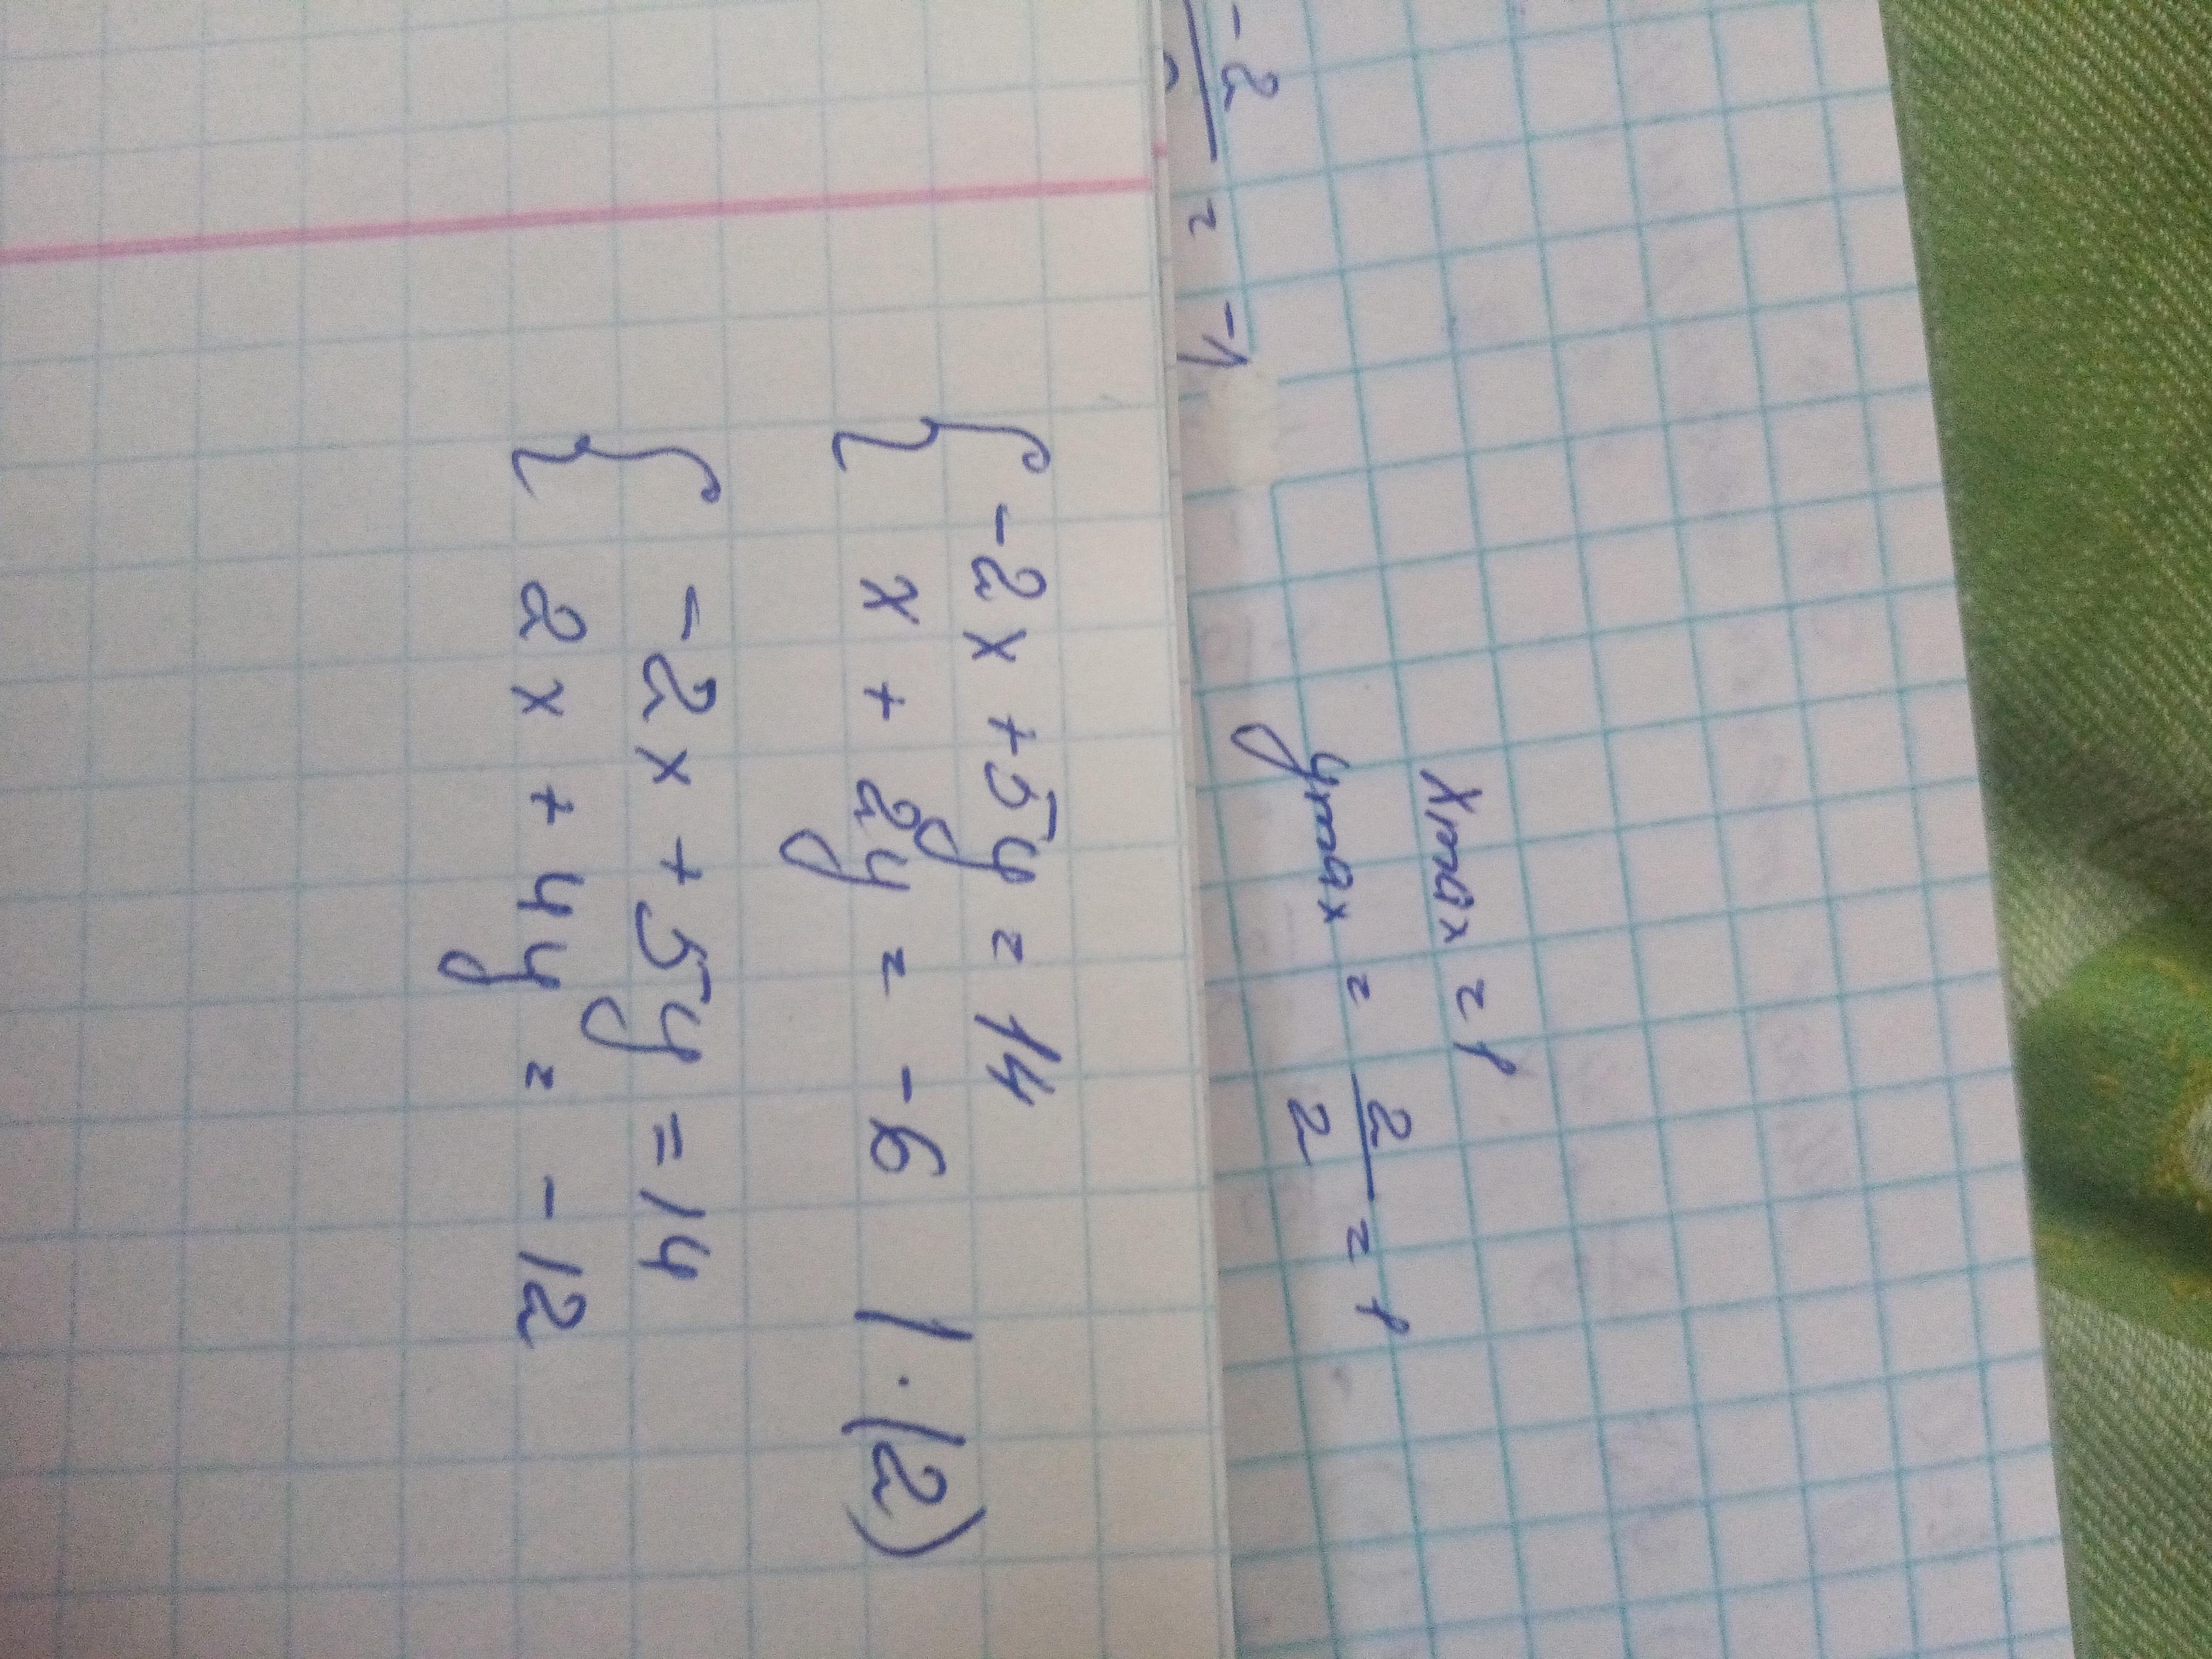 xmax = 1
ymax = 2/2 = 1
-2/ = -1
{ -2x + 5y = 14
{ x + 2y = -6 | · (2)
{ -2x + 5y = 14
{ 2x + 4y = -12